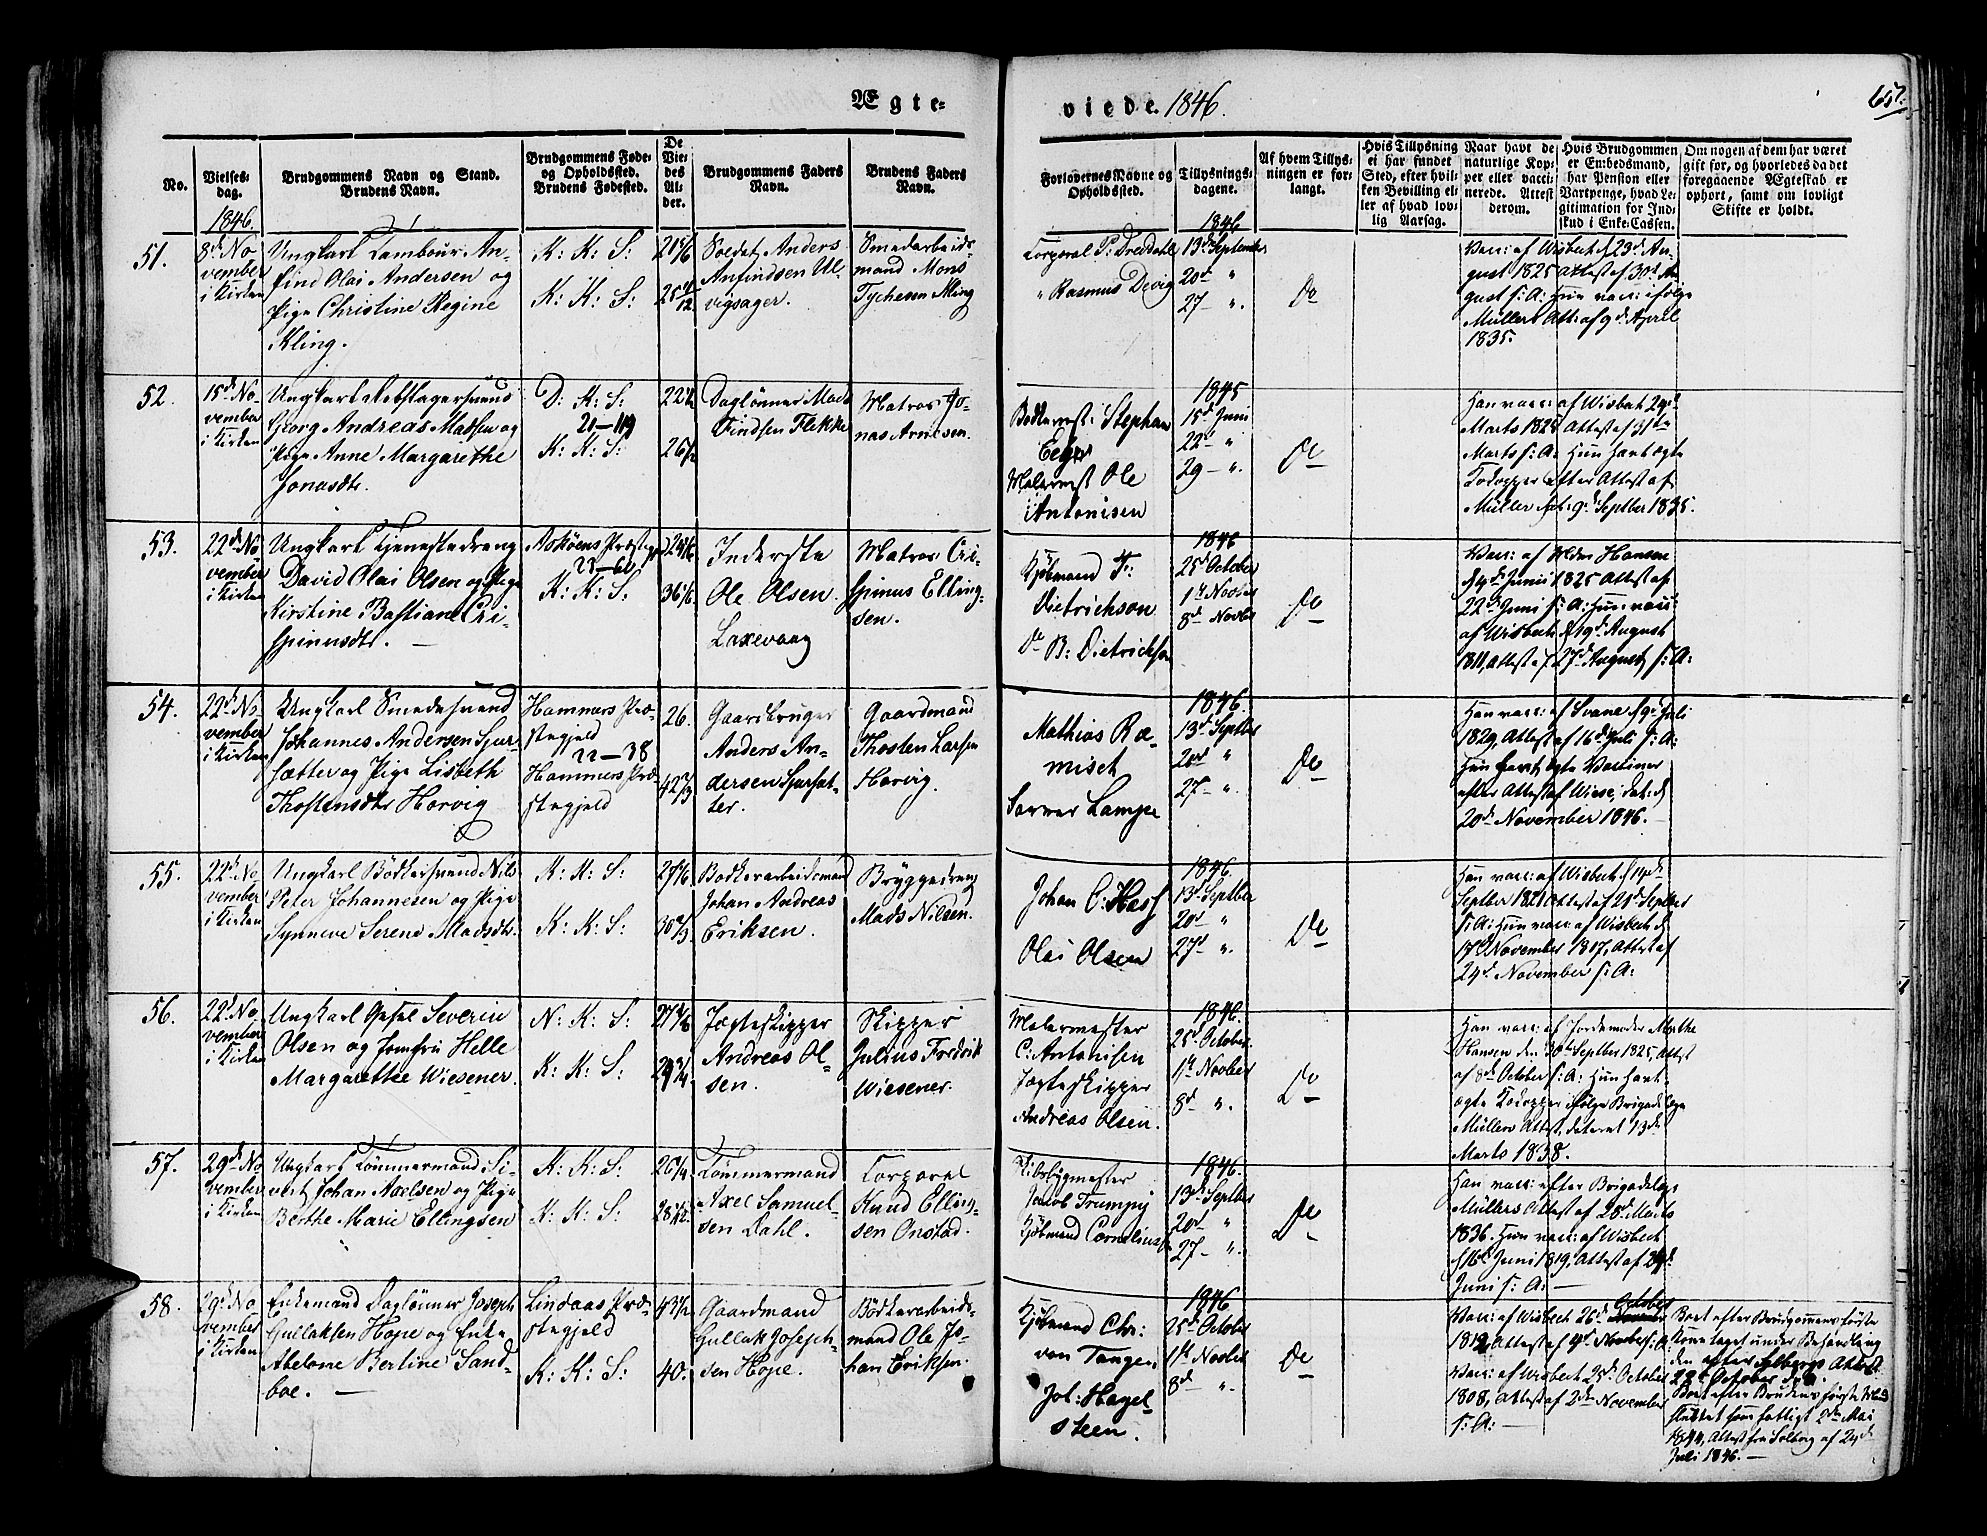 Ægte-
viede. 1846.
657.
No.
Vielses-
dag.
Brudgommens Navn og Stand.
Brudens Navn.
Brudgommens Føde-
og Opholdssted.
Brudens Fødested.
De
Vie-
des
Al-
der.
Brudgommens Faders
Navn.
Brudens Faders
Navn.
Forlovernes Navne og
Opholdssted.
Tillysnings-
dagene.
Af hvem Tillys-
ningen er for-
langt.
Hvis Tillysning
ei har fundet
Sted, efter hvil-
ken Bevilling el-
ler af hvad lov-
lig Aarsag.
Naar havt de
naturlige Kop-
per eller vacci-
nerede. Attest
derom.
Hvis Brudgommen
er Embedsmand,
har Pension eller
Vartpenge, hvad Le-
gitimation for Ind-
skud i Enke-Cassen.
Om nogen af dem har været
gift før, og hvorledes da det
foregaaende Ægteskab er
ophørt, samt om lovligt
Skifte er holdt.
1846.
51.
8de No-
vember
i Kirken
Ungkarl Tambour An-
find Olai Andersen og
Pige Christine Regine
Kling.
K: K: S:
K: K: S:
Soldat Anders
Anfindsen Ul-
vigsager.
Smedarbeids-
mand Mons
Tychesen Kling
Corporal P: Dredahl
" Rasmus Devig
1846
13de September
20de "
27 - ".
Do
Vacc: af Wisbech d 23de Au-
gust 1825 Attest af 30te Au-
gust s: A: Hun vacc: ifølge
Müllers Att: af 9de April
1835.
52.
15de No-
vember
i Kirken
Ungkarl Rebslagersvend
Georg Andreas Madsen og
Pige Anne Margarethe
Jonasdtr.
D: K: S:
K: K: S:
Daglønner Mads
Findsen Flekke
Matros Jo-
nas Arnesen.
Bødkermst: Stephan
Malermst Ole
Antonisen
1845
15de Juni
22de "
29 - ".
Do
Han vacc: af Wisbech 24de
Marts 1825 Attest af 31te
Marts s: A: Hun havt ægte
Kokopper efter Attest af
Müller dat: 9de Septber 1835.
53.
22de No-
vember
i Kirken
Ungkarl Tjenestedreng
David Olai Olsen og Pige
Kirstine Bastiane Cri-
spinusdtr. —
Askøens Præstegj:
K: K: S:
Inderste
Ole Olsen
Laxevaag
Matros Cri-
spinus Elling-
sen.
Kjøbmand Fr:
Dietrichson
Do B: Dietrichson
1846
25de October
1ste Novber
8de Novber
Do
Vacc: af Mdm Hansen
d 4de Junii 1825 Attest af
22de Juni s: A: Hun vacc:
af Wisbech d 19de August
1811, Attest af 27de August s: A:
54.
22de No-
vember
i Kirken
Ungkarl Smedesvend
Johannes Andersen Sjur-
sætter og Pige Lisbeth
Thostensdtr Horvig
Hammers Præ-
stegjeld
22—38
Hammers Præ-
stegjeld
26.
42 2/3
Gaardbruger
Anders An-
dersen Sjursæt-
ter.
Gaardmand
Thosten Larsen
Horvig.
Mathias Ra-
misch
Larver Lampe
1846.
13de Septber
20de "
27 - ".
Do
Han vacc: af Svane d 9de Juli
1829, Attest af 16de Juli s: A:
Hun havt ægte Vacciner
efter Attest af Wiese, dat: d
20de November 1846. —
55.
22de No-
vember
i Kirken
Ungkarl Bødkersvend Nils
Peter Johannesen og Pige
Synneve Serene Madsdtr.
K: K: S:
K: K: S:
Bødkerarbeidsmand
Johan Andreas
Eriksen.
Bryggedreng
Mads Nilsen.
Johan C: Hass
Olai Olsen
1846.
13de Septber
20de "
27de ".
Do
Han vacc: af Wisbech d 14de
Septber 1821 Attest af 21de Septber
s: A: Hun vacc: af Wisbech d
17de November 1817, Attest af
24de November s: A:
56.
22de No-
vember
i Kirken
Ungkarl Gesel Severin
Olsen og Jomfru Helle
Margarethe Wiesener.
N: K: S:
K: K: S:
Jægteskipper
Andreas Ol-
sen.
Skipper
Julius Fredrik
Wiesener.
Malermester
C: Antonisen
Jægteskipper
Andreas Olsen.
1846.
25de October
1ste Novber
8de ".
Do
Han vacc: af Jordemoder Mgrthe
Hansen den 30te Septber 1825, Attest
af 8de October s: A: Hun havt
ægte Kokopper ifølge Brigadelæge
Müllers Attest, dateret 13de
Marts 1838.
57.
29de No-
vember
i Kirken
Ungkarl Tømmermand Si-
vert Johan Axelsen og Pige
Berthe Marie Ellingsen
K: K: S:
K: K: S:
Tømmermand
Axel Samuel-
sen Dahl.
Corporal
Knud Elling-
sen Onstad.
Skibsbygmester
Jacob Trumpy
Kjøbmand Corneliussen
1846.
13de Septber
20de "
27 - ".
Do
Han vacc: efter Brigadelæge
Müllers Attest af 28de Marts
1836. Hun vacc: af Wisbech
d 16de Juni 1819, Attest af 24de
Juni s: A: —
58.
29de No-
vember
i Kirken
Enkemand Dagløner Joseph
Gullaksen Hope og Enke
Abelone Bertine Sand-
boe. —
Lindaas Præ-
stegjeld
K: K: S:
43 1/2
40.
Gaardmand
Gullak Joseph-
sen Hope.
Bødkerarbeids-
mand Ole Jo-
han Eriksen.
Kjøbmand Chr:
von Tangen
Joh: Hagel-
steen.
1846
25de October
1ste Novber
8de ".
Do
Vacc: af Wisbech 26de October
1812, Attest af 4de Novber s: A:
Vacc: af Wisbech 25de October
1808, Attest af 2den November
s: A: —
Boet efter Brudgomens første
Kone taget under Behandling
den efter Solbergs Attest
22de October d. A.
Boet efter Brudens første Mand
sluttet som fattigt 2den Mai
1844, Attest fra Solberg af 24de
Juli 1846. —